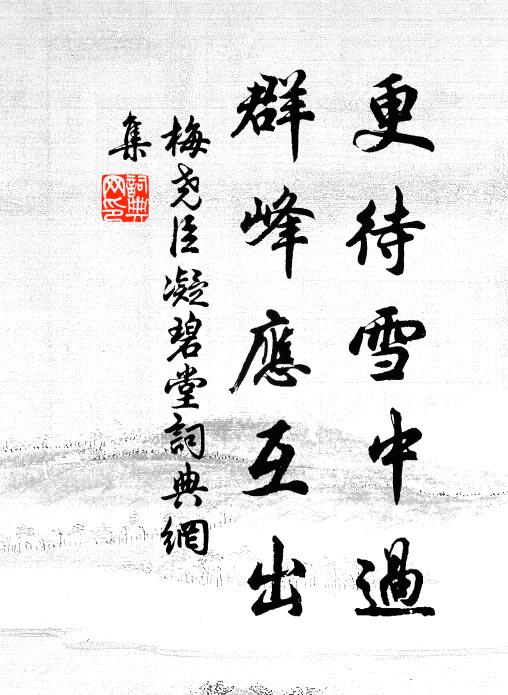 更待雪中過
群峰應互出
梅堯臣凝碧堂詞典網
集
詞典網印